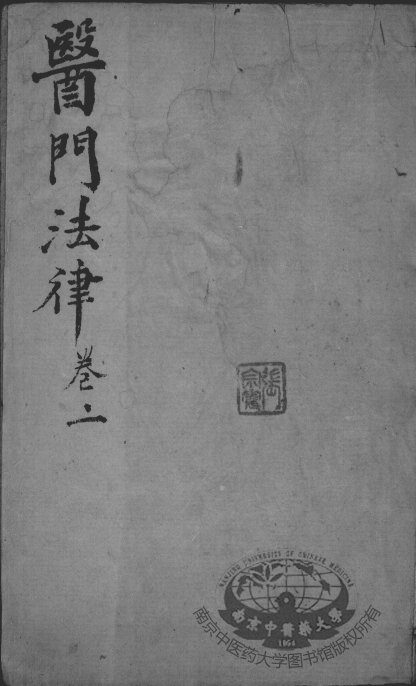 醫門法律
卷二
NANJING UNIVERSITY OF CHINESE MEDICINE
南京中醫藥大學
1954
南京中医药大学图书馆版权所有